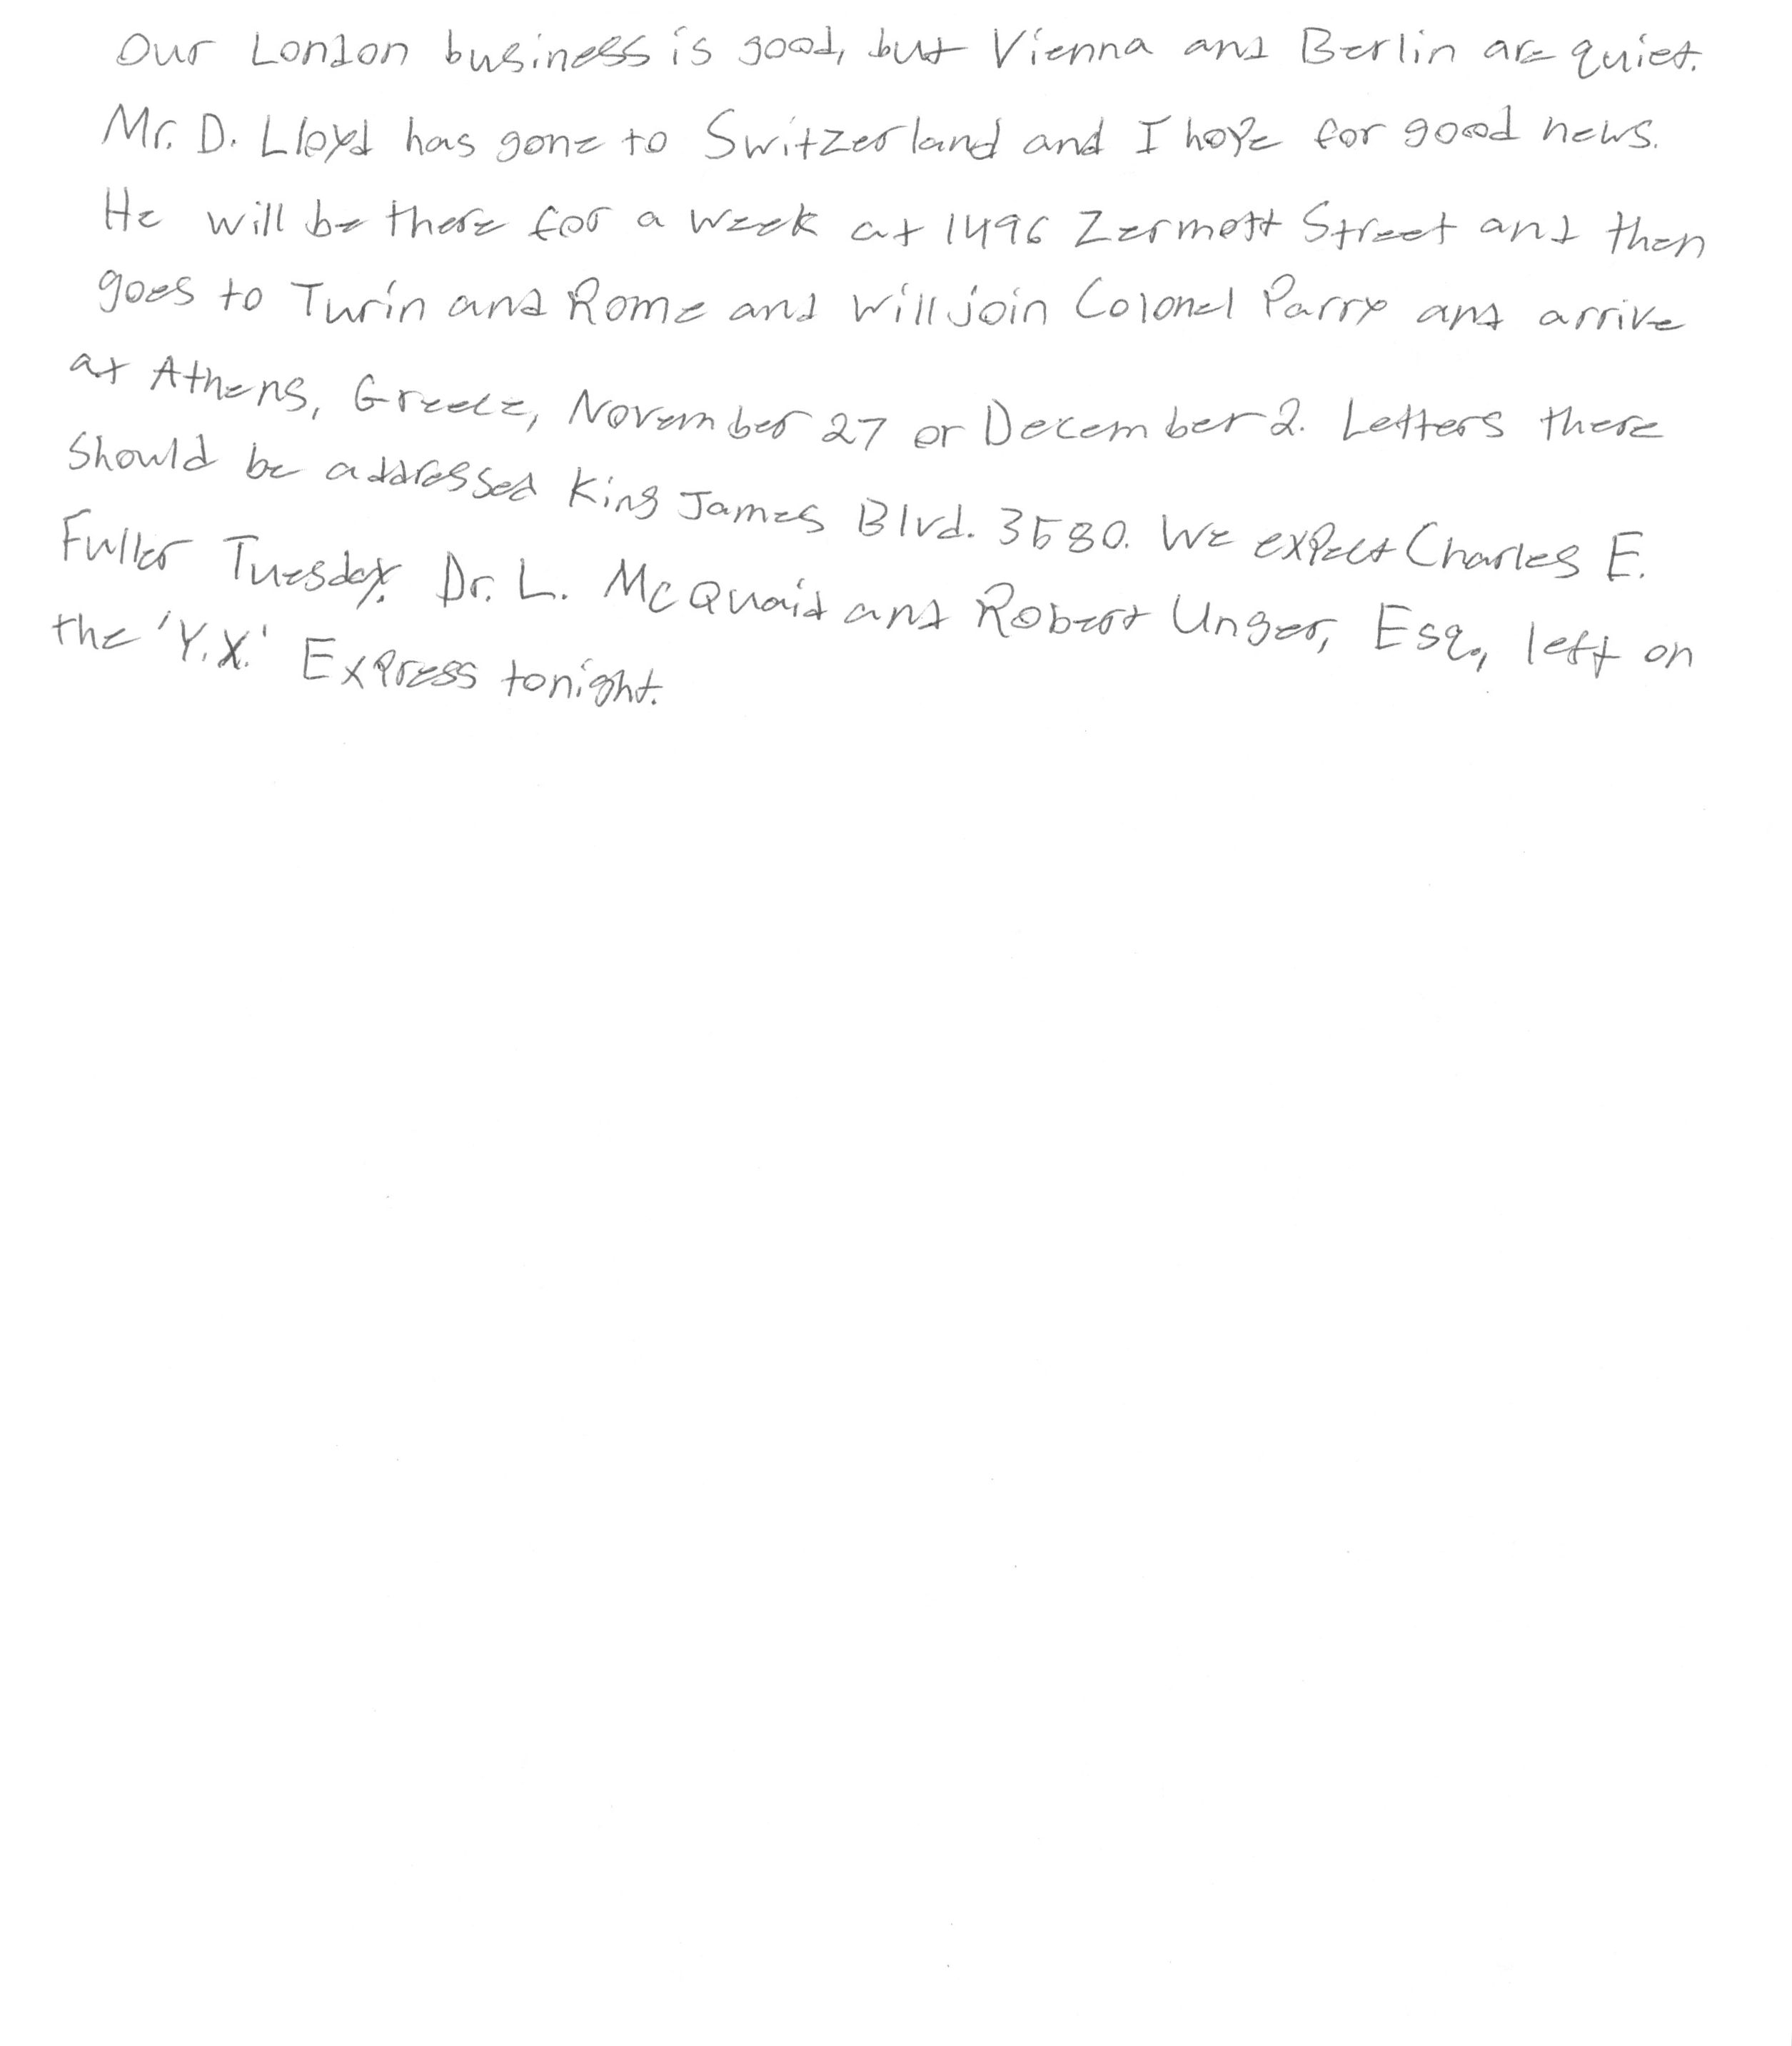 Our London business is good, but Vienna and Berlin are quiet.
Mr. D. Lloyd has gone to Switzerland and I hope for good news.
He will be there for a week at 1496 Zermott Street and then
goes to Turin and Rome and will join Colonel Parry and arrive
at Athens, Greece, November 27 or December 2. Letters there
should be addressed King James Blvd. 3580. We expect Charles E.
Fuller Tuesday. Dr. L. McQuaid and Robert Unger, Esq., left on
the 'Y.X.' Express tonight.